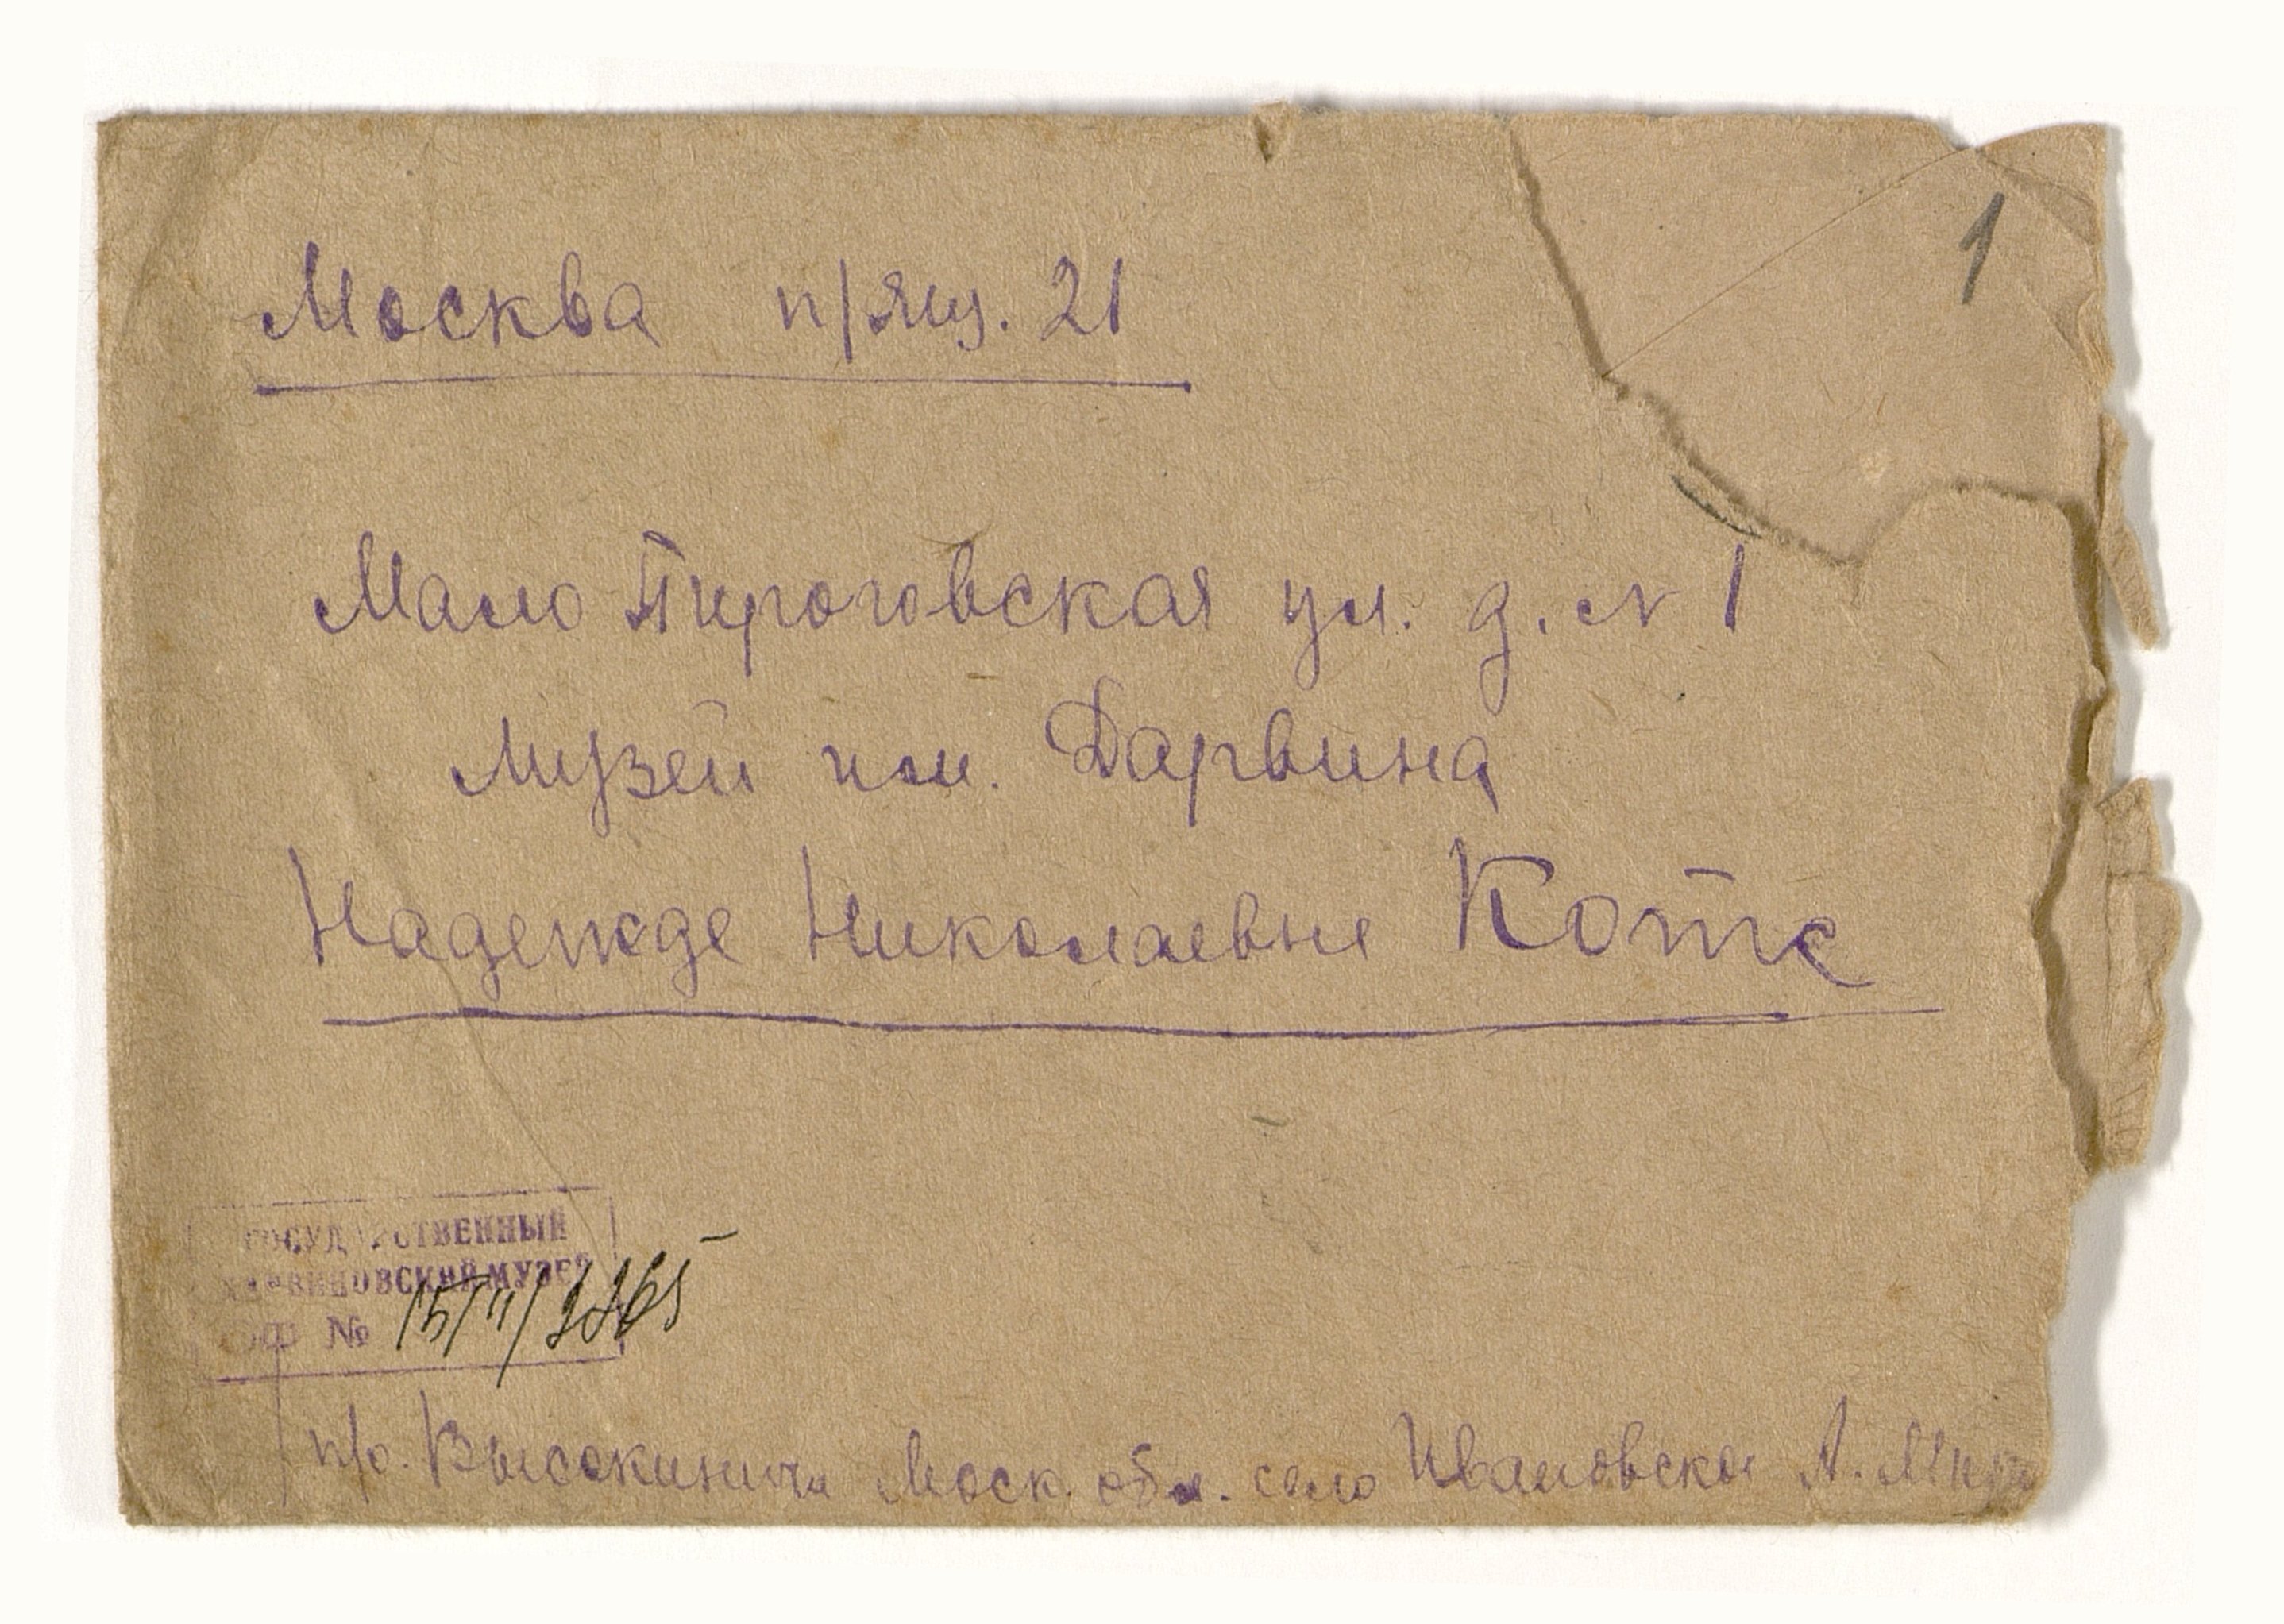 1
Москва п/ящ. 21
Мало Пироговская ул. д. № 1
Музей им. Дарвина
Надежде Николаевне Котс
ГОСУДАРСТВЕННЫЙ
ДАРВИНОВСКИЙ МУЗЕЙ
ОФ №
п/о. Высокиничи Моск. обл. село Ивановское А.